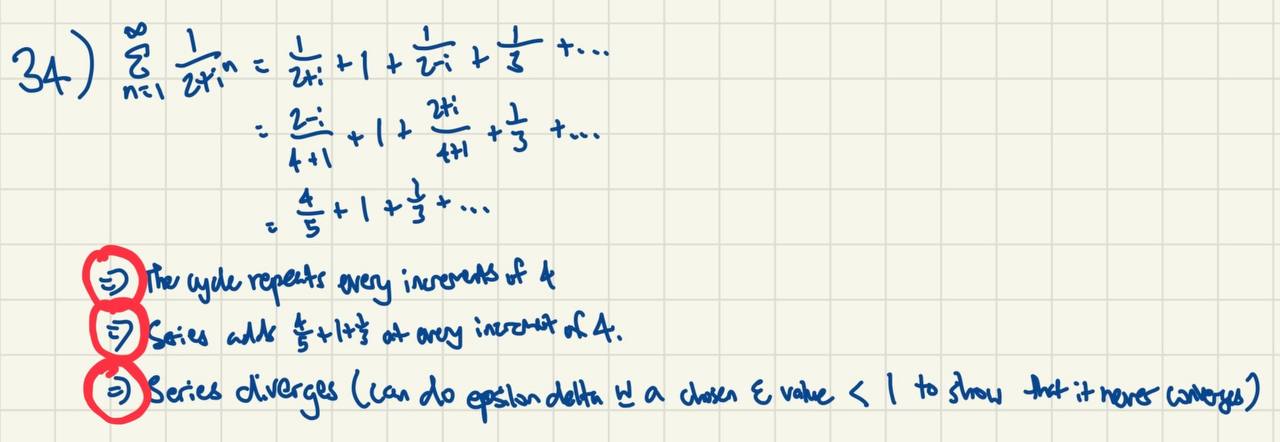 34) ∞∑n=1 1/(2+iⁿ) = 1/(2+i) + 1 + 1/(2-i) + 1/3 + ...
= (2-i)/(4+1) + 1 + (2+i)/(4+1) + 1/3 + ...
= 4/5 + 1 + 1/3 + ...
⇒ The cycle repeats every increments of 4
⇒ Series adds 4/5 + 1 + 1/3 at every increment of 4.
⇒ Series diverges (can do epsilon delta w a chosen ε value < 1 to show that it never converges)